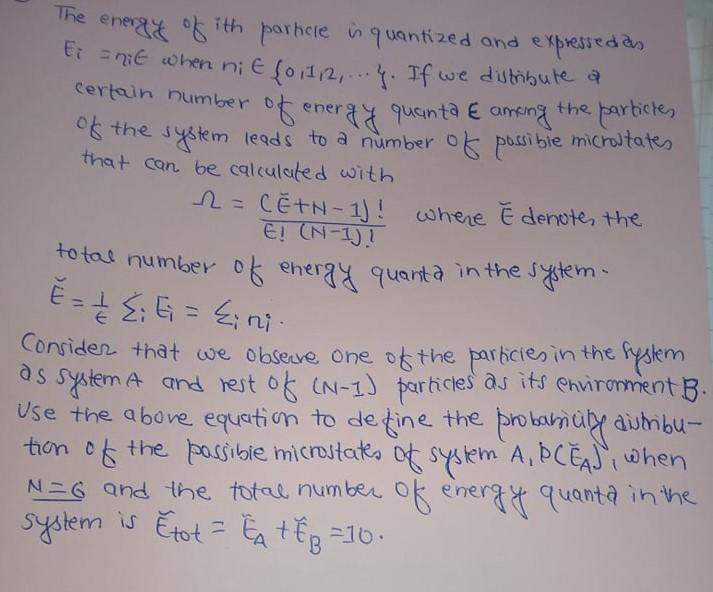 The energy of ith particle is quantized and expressed as
Ei = niϵ when ni ∈ {0,1,2,...}. If we distribute a
certain number of energy quanta ϵ among the particles
of the system leads to a number of possible microstates
that can be calculated with
Ω = (Ě+N-1)! / E! (N-1)! where Ě denotes the
total number of energy quanta in the system.
Ě = 1/ϵ Σi Ei = Σi ni.
Consider that we observe one of the particles in the system
as system A and rest of (N-1) particles as its environment B.
Use the above equation to define the probability distribu-
tion of the possible microstates of system A, P(ĚA), when
N=6 and the total number of energy quanta in the
system is Ětot = ĚA + ĚB = 10.